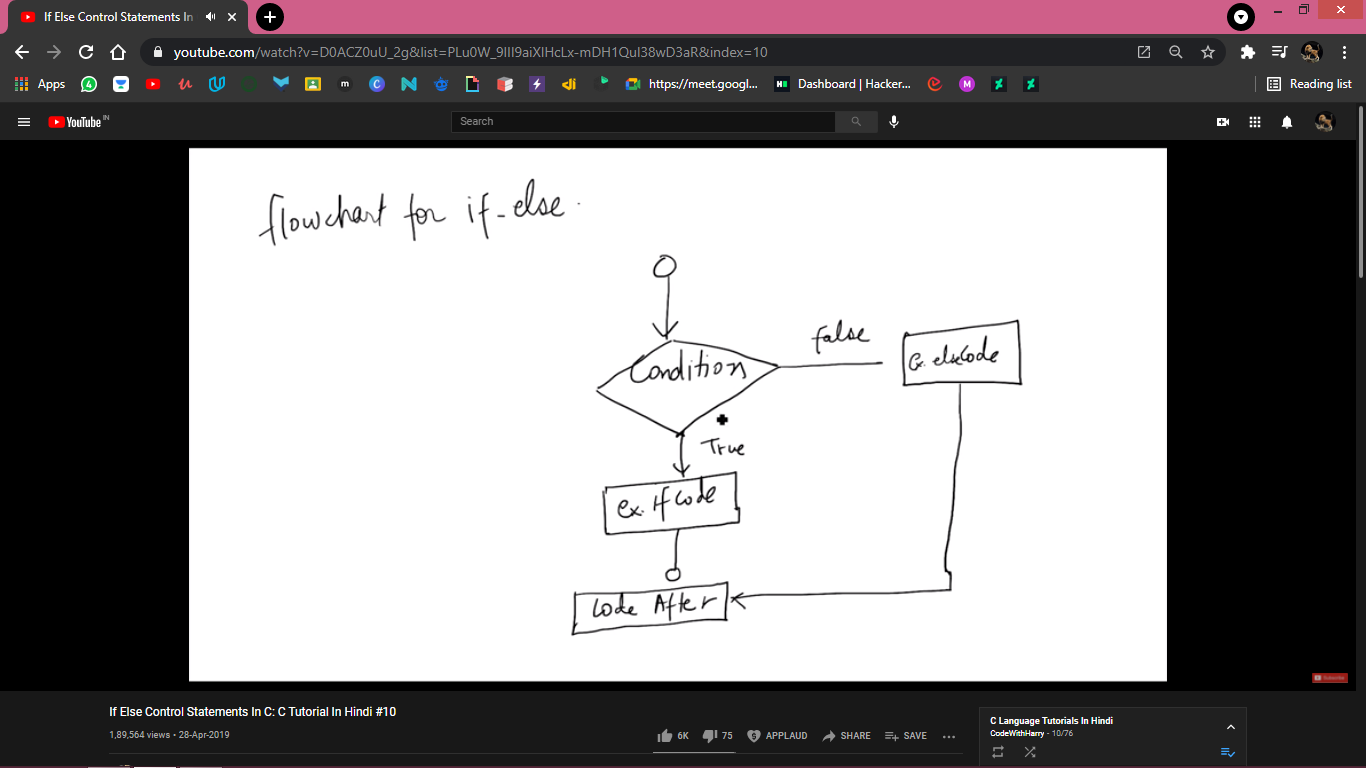 If Else Control Statements In
youtube.com/watch?v=D0ACZ0uU_2g&list=PLu0W_9lII9aiXlHcLx-mDH1Qul38wD3aR&index=10
Apps
https://meet.googl...
Dashboard | Hacker...
Reading list
YouTube IN
Search
flowchart for if-else.
Condition
false
Ex. elseCode
True
ex. If Code
Code After
Subscribe
If Else Control Statements In C: C Tutorial In Hindi #10
1,89,564 views • 28-Apr-2019
6K
75
APPLAUD
SHARE
SAVE
C Language Tutorials In Hindi
CodeWithHarry - 10/76